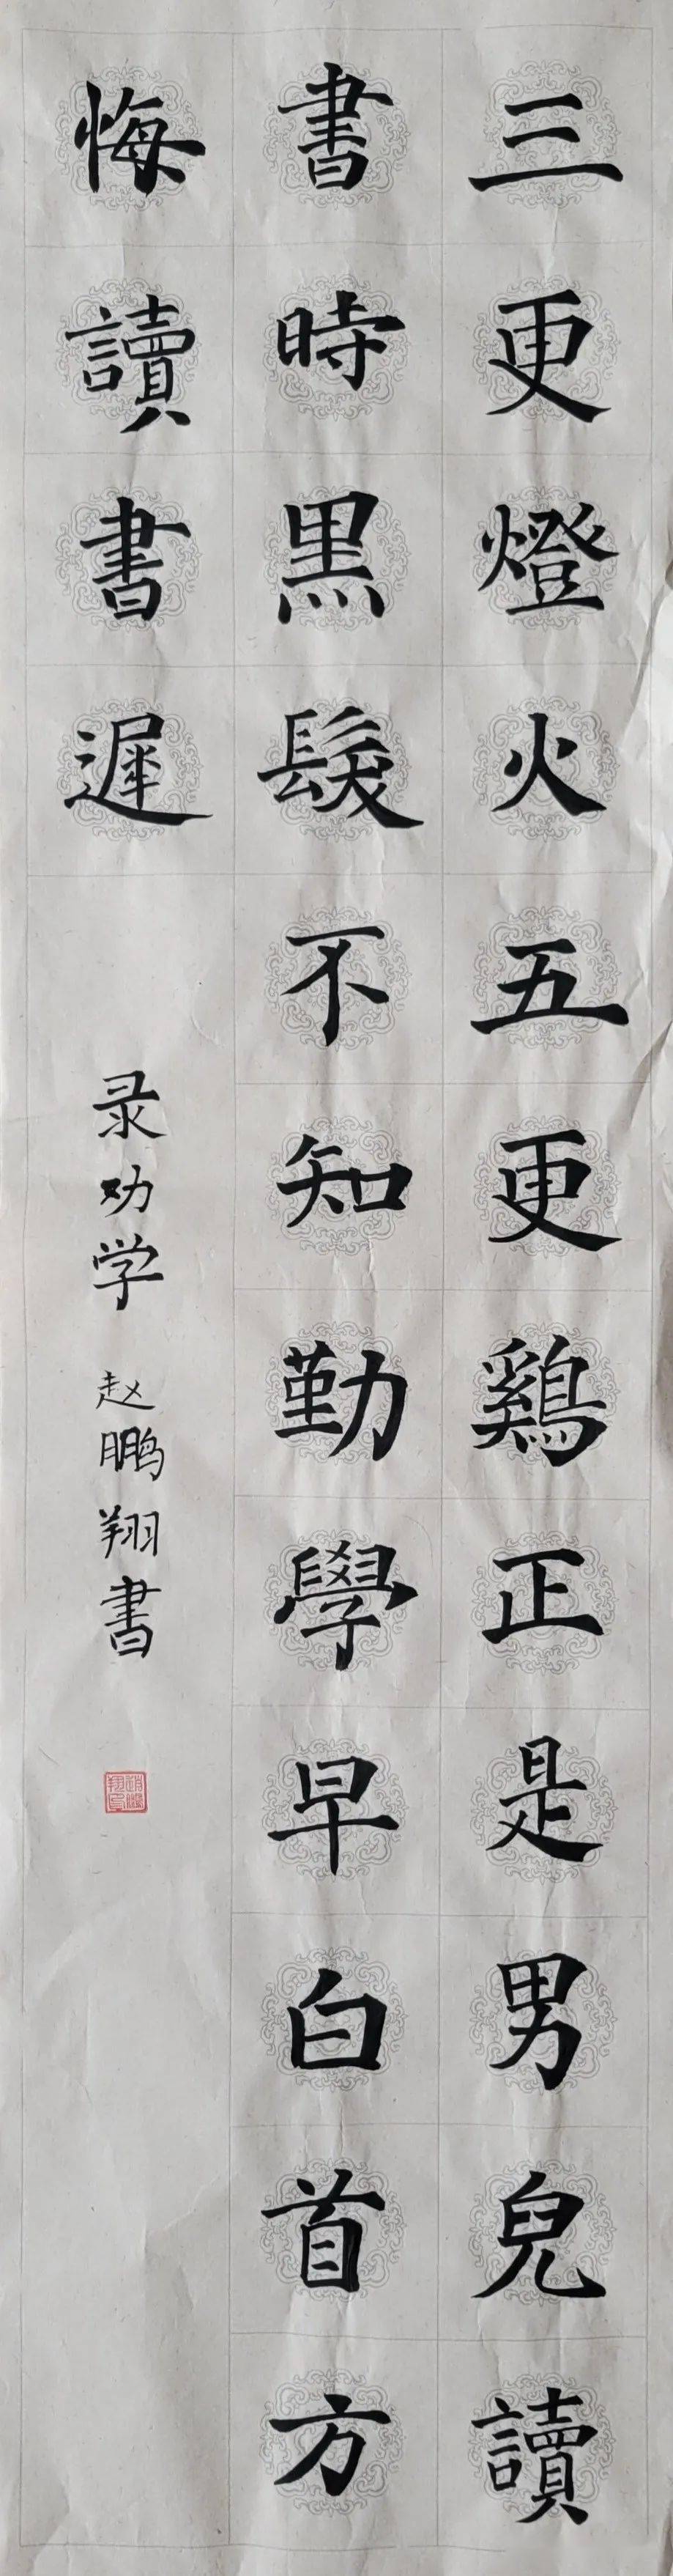 三更燈火五更鷄正是男兒讀
書時黑髮不知勤學早白首方
悔讀書遲
录劝学 赵鹏翔書